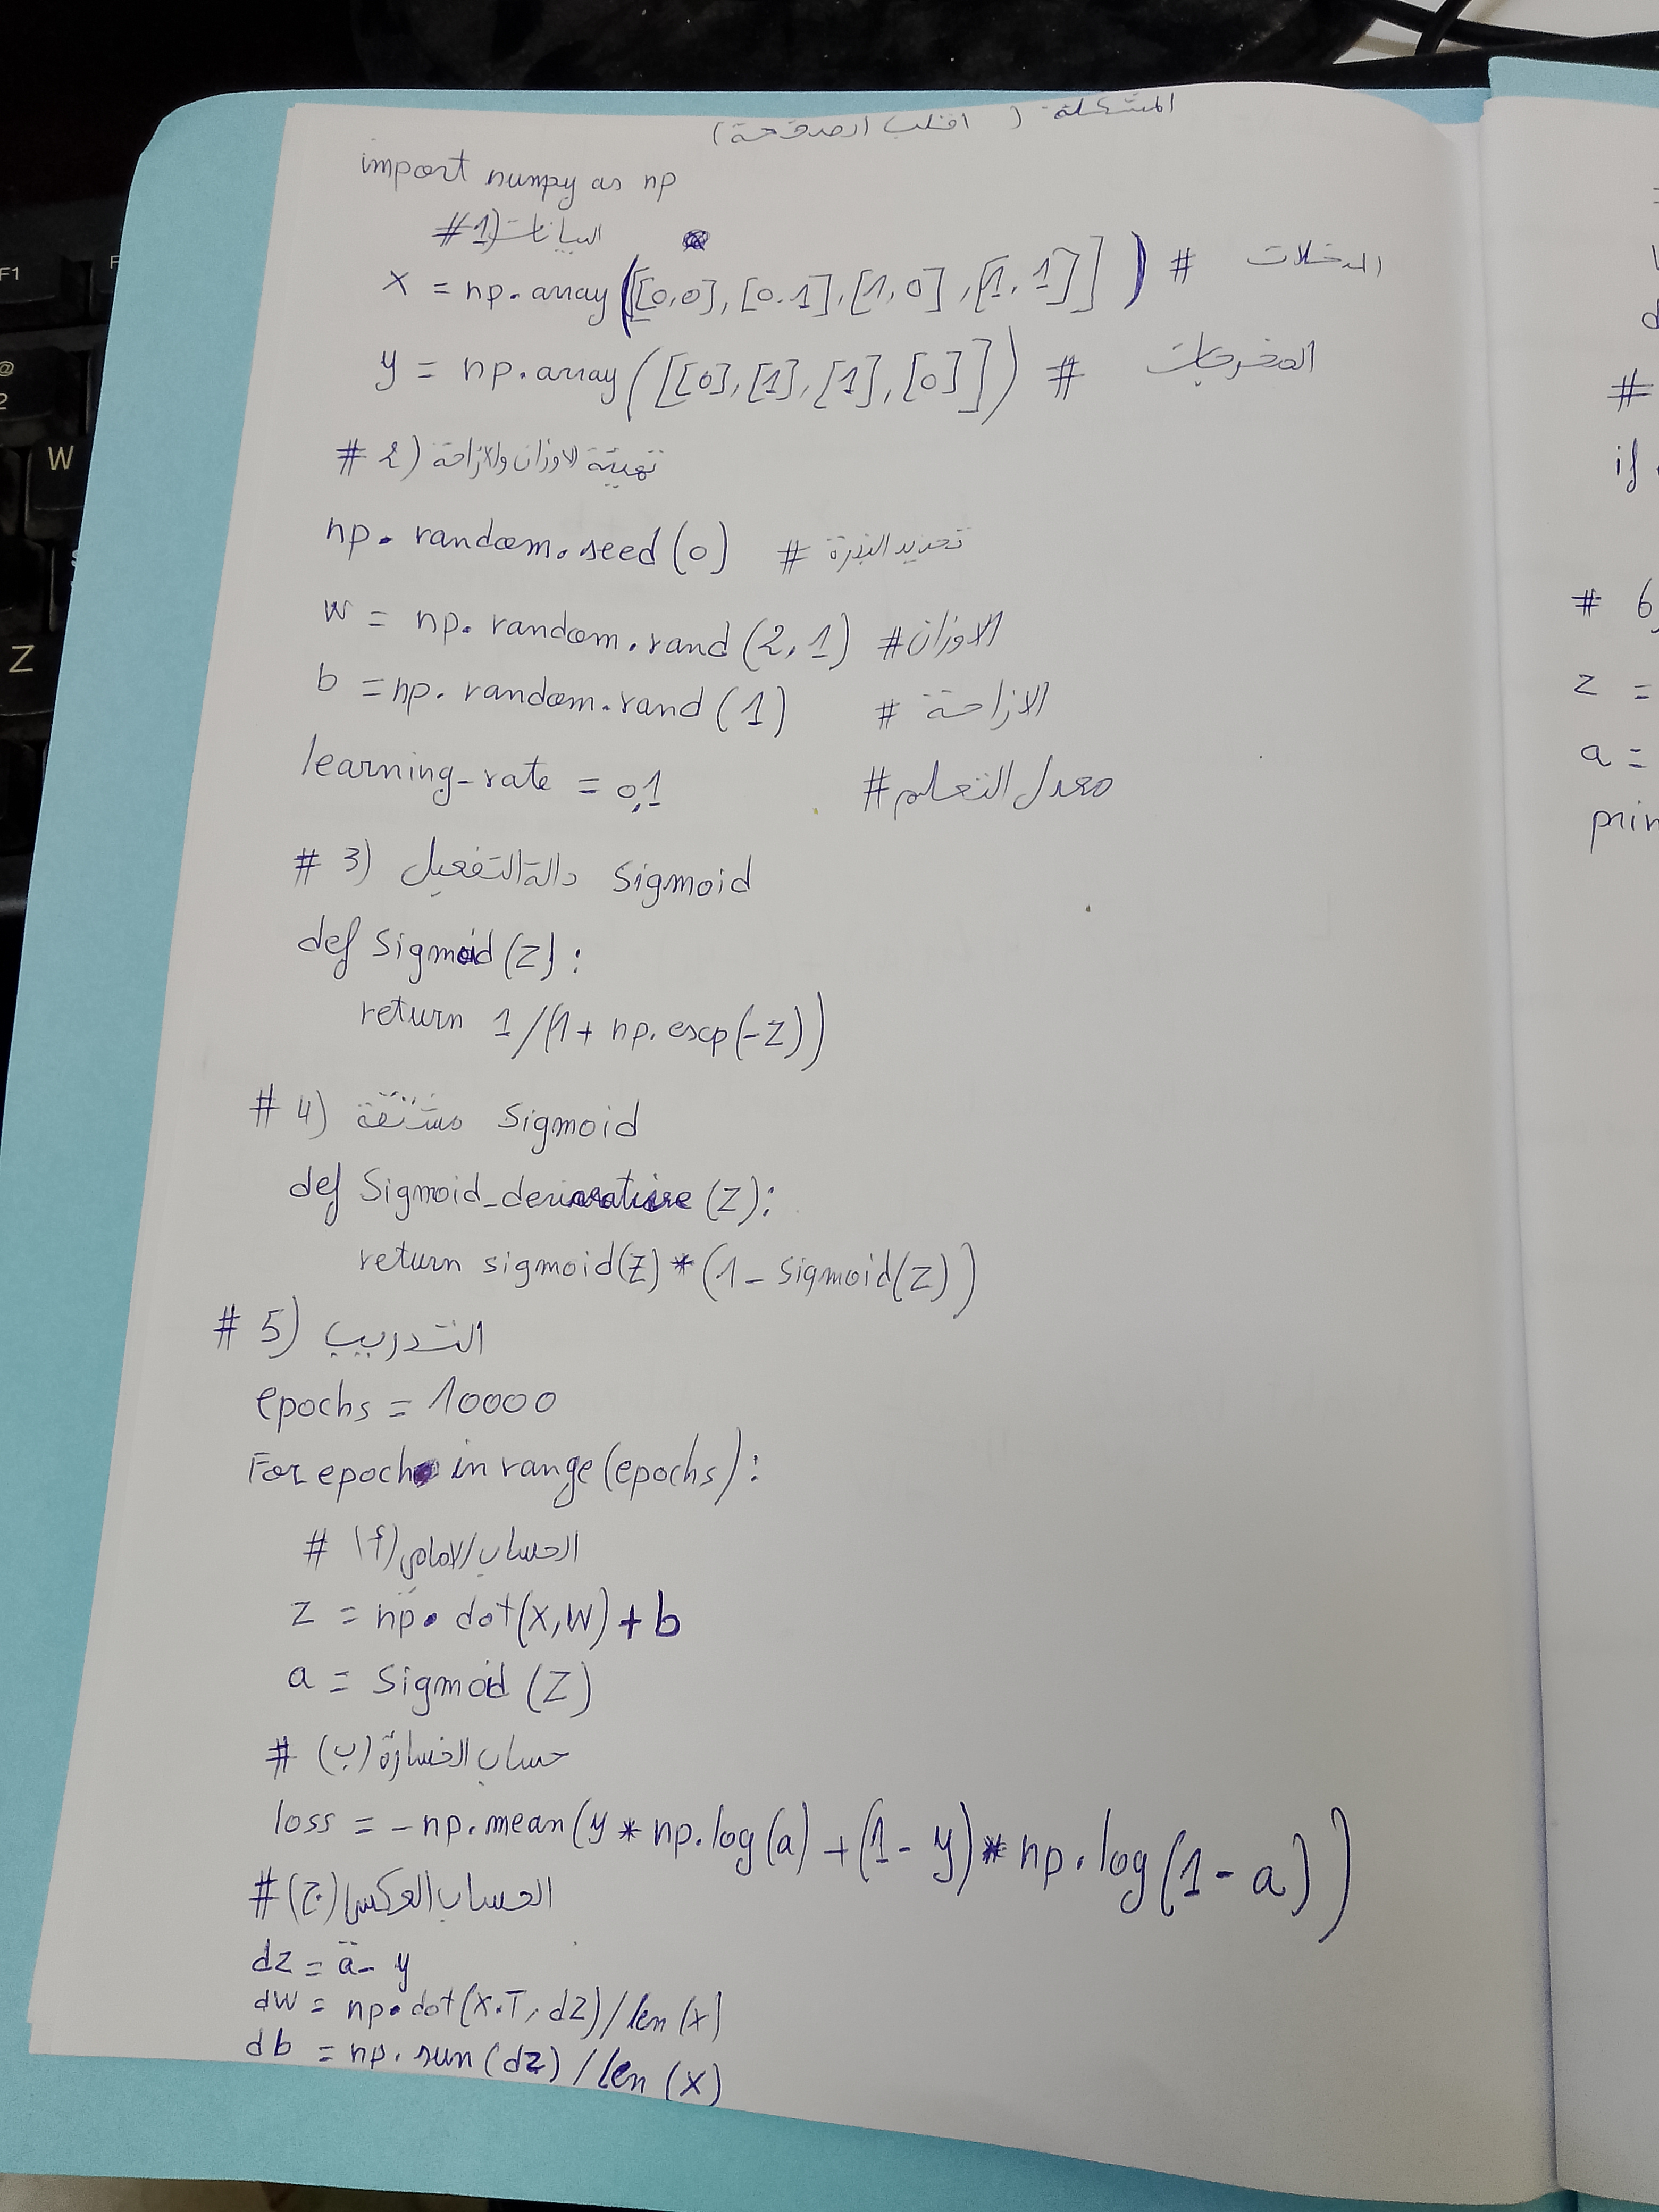 المشكلة ( اقلب الصفحة)
import numpy as np
#1) البيانات
X = np.array([[0,0],[0.1],[1,0],[1,1]]) # المدخلات
y = np.array([[0],[1],[1],[0]]) # المخرجات
# 2) تهيئة الاوزان والازاحة
np.random.seed(0) # تحديد البذرة
W = np.random.rand(2,1) # الاوزان
b = np.random.rand(1) # الازاحة
learning_rate = 0,1 # معدل التعلم
# 3) دالة التفعيل Sigmoid
def Sigmoid(Z):
return 1/(1+ np.exp(-Z))
# 4) مشتقة Sigmoid
def Sigmoid_derivative(Z):
return sigmoid(Z)*(1-Sigmoid(Z))
# 5) التدريب
epochs = 10000
For epoch in range(epochs):
# (أ) الحساب الامامي
Z = np.dot(X,W)+b
a = Sigmoid(Z)
# (ب) حساب الخسارة
loss = -np.mean(y * np.log(a) + (1-y)* np.log(1-a))
# (ج) الحساب العكسي
dZ = a-y
dW = np.dot(X.T, dZ)/len(X)
db = np.sun(dz)/len(X)
#
if
# 6)
Z =
a =
prin
F1
@
2
W
Z